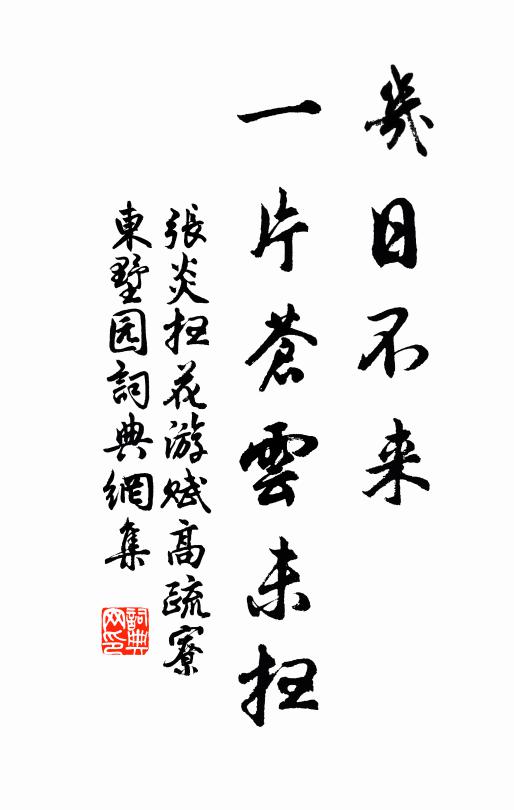 幾日不来
一片蒼雲未扫
張炎扫花游赋高疏寮
東墅园詞典網集
詞典网印